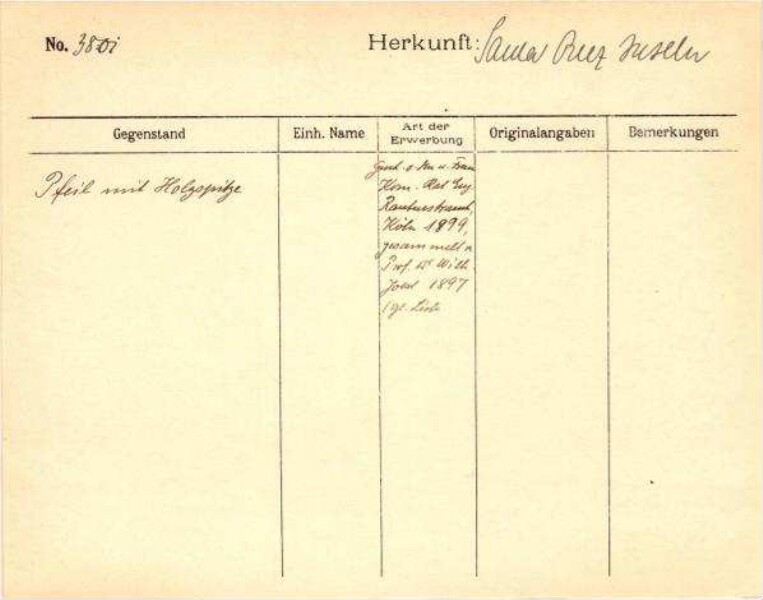 No. 380i
Herkunft: Santa Cruz Inseln
Gegenstand
Einh. Name
Art der
Erwerbung
Originalangaben
Bemerkungen
Pfeil mit Holzspitze
Gesch. v. Hrn u. Frau
Kom. Rat Eug.
Rautenstrauch,
Köln 1899,
gesammelt v.
Prof. Dr Wilh.
Joest 1897
Liste